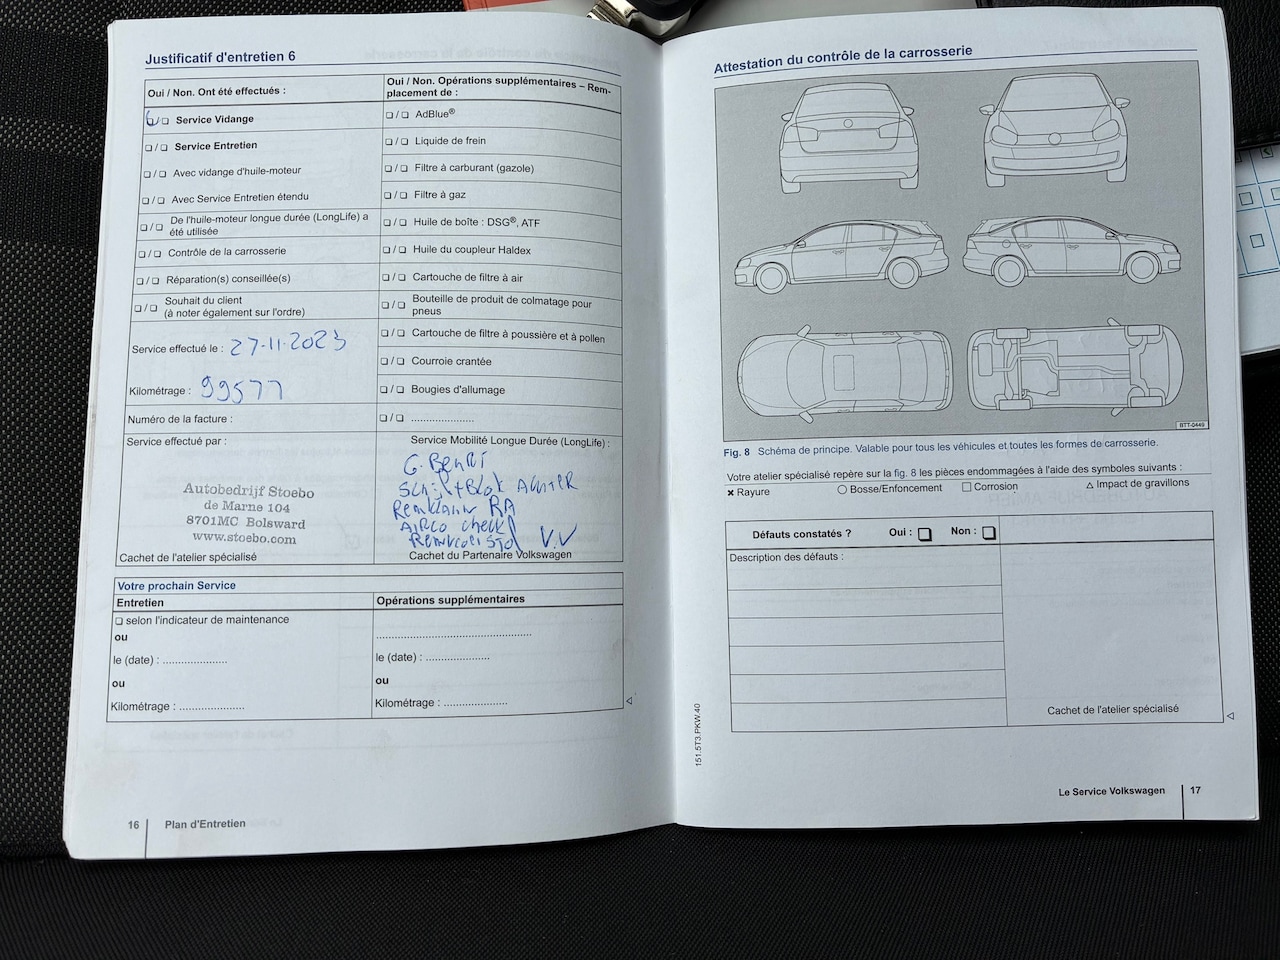 Justificatif d'entretien 6
Oui / Non. Ont été effectués :
❏ Service Vidange
❏ / ❏ Service Entretien
❏ / ❏ Avec vidange d'huile-moteur
❏ / ❏ Avec Service Entretien étendu
❏ / ❏ De l'huile-moteur longue durée (LongLife) a
été utilisée
❏ / ❏ Contrôle de la carrosserie
❏ / ❏ Réparation(s) conseillée(s)
❏ / ❏ Souhait du client
(à noter également sur l'ordre)
Service effectué le : 27-11-2023
Kilométrage : 99577
Numéro de la facture :
Service effectué par :
Autobedrijf Stoebo
de Marne 104
8701MC Bolsward
www.stoebo.com
Cachet de l'atelier spécialisé
Oui / Non. Opérations supplémentaires – Rem-
placement de :
❏ / ❏ AdBlue®
❏ / ❏ Liquide de frein
❏ / ❏ Filtre à carburant (gazole)
❏ / ❏ Filtre à gaz
❏ / ❏ Huile de boîte : DSG®, ATF
❏ / ❏ Huile du coupleur Haldex
❏ / ❏ Cartouche de filtre à air
❏ / ❏ Bouteille de produit de colmatage pour
pneus
❏ / ❏ Cartouche de filtre à poussière et à pollen
❏ / ❏ Courroie crantée
❏ / ❏ Bougies d'allumage
❏ / ❏ .....................
Service Mobilité Longue Durée (LongLife) :
G. Beurt
Schijf+Blok Achter
Remklauw RA
Airco check
V.V
Cachet du Partenaire Volkswagen
Votre prochain Service
Entretien
❏ selon l'indicateur de maintenance
ou
le (date) : .....................
ou
Kilométrage : .....................
Opérations supplémentaires
..................................................
le (date) : .....................
ou
Kilométrage : .....................
16 Plan d'Entretien
Attestation du contrôle de la carrosserie
BTT-0449
Fig. 8 Schéma de principe. Valable pour tous les véhicules et toutes les formes de carrosserie.
Votre atelier spécialisé repère sur la fig. 8 les pièces endommagées à l'aide des symboles suivants :
✖ Rayure ○ Bosse/Enfoncement □ Corrosion △ Impact de gravillons
Défauts constatés ? Oui : ❏ Non : ❏
Description des défauts :
Cachet de l'atelier spécialisé
151.5T3.PKW.40
Le Service Volkswagen 17